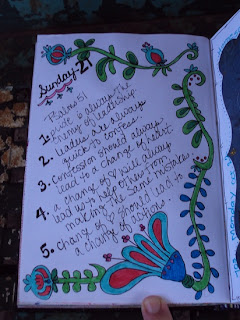 Sunday-21
Psalms 51
1. Pride is always the
enemy of leadership
2. Leaders are always
quick to confess.
3. Confession should always
lead to a change of heart
4. a change of ♡ will always
lead us to help others from
making the same mistakes
5. Change of ♡ should lead to
a change of actions.